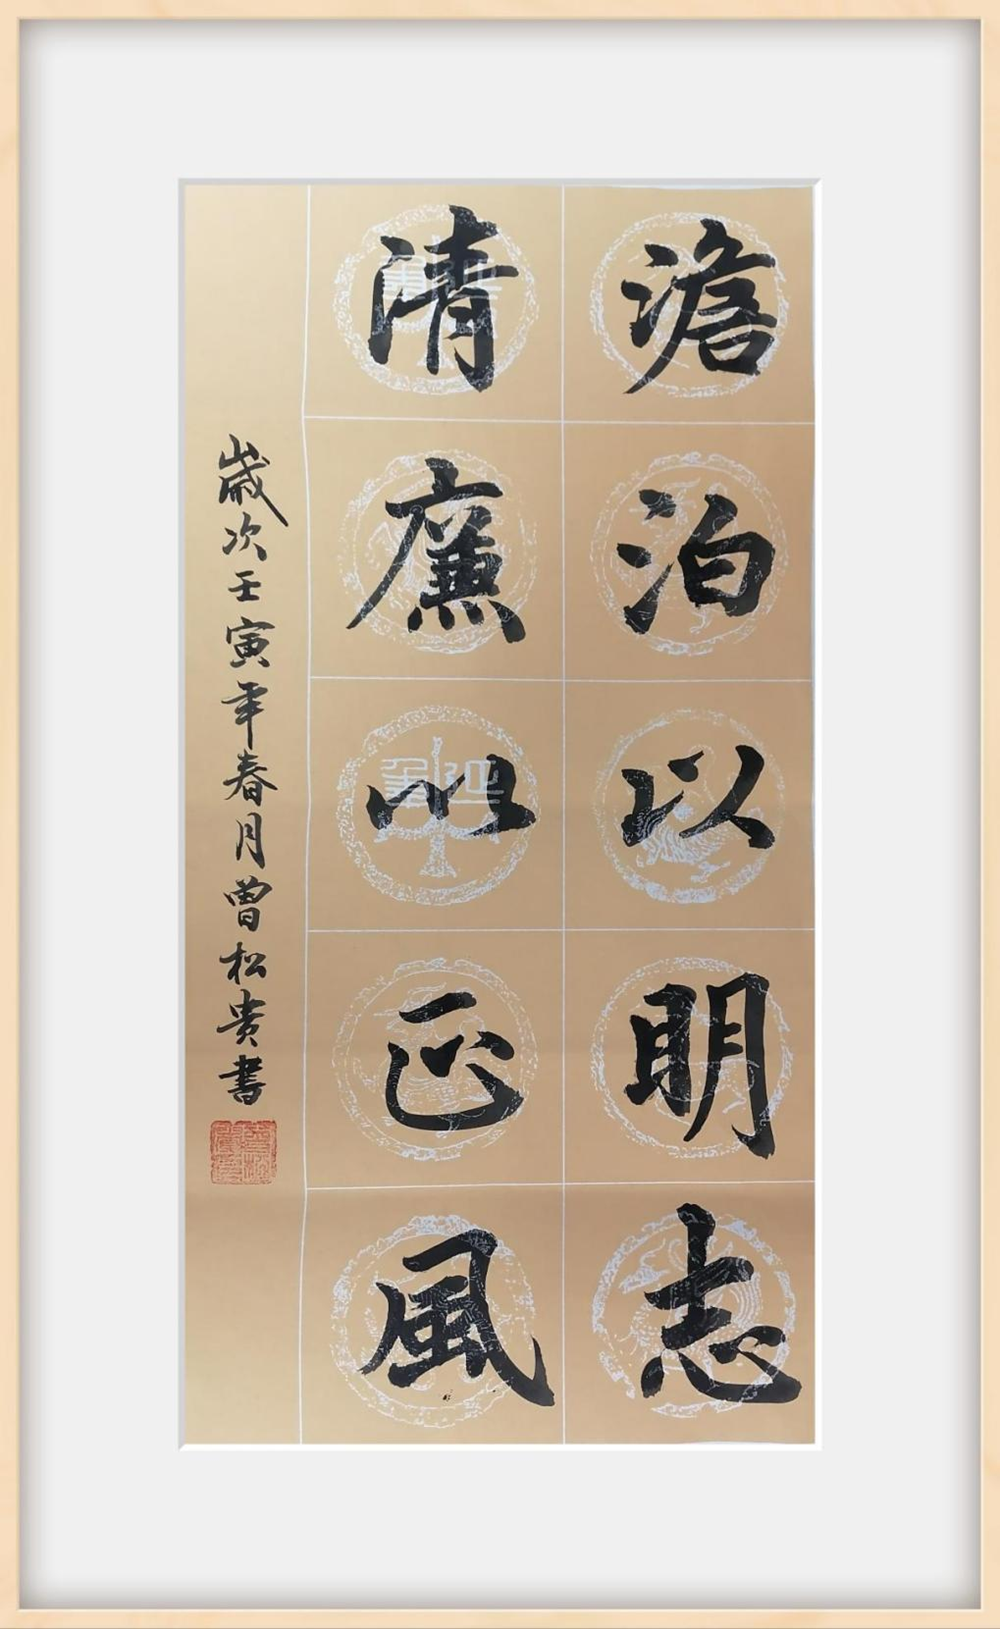 澹泊以明志
清廉以正风
歲次壬寅年春月曾松贵書